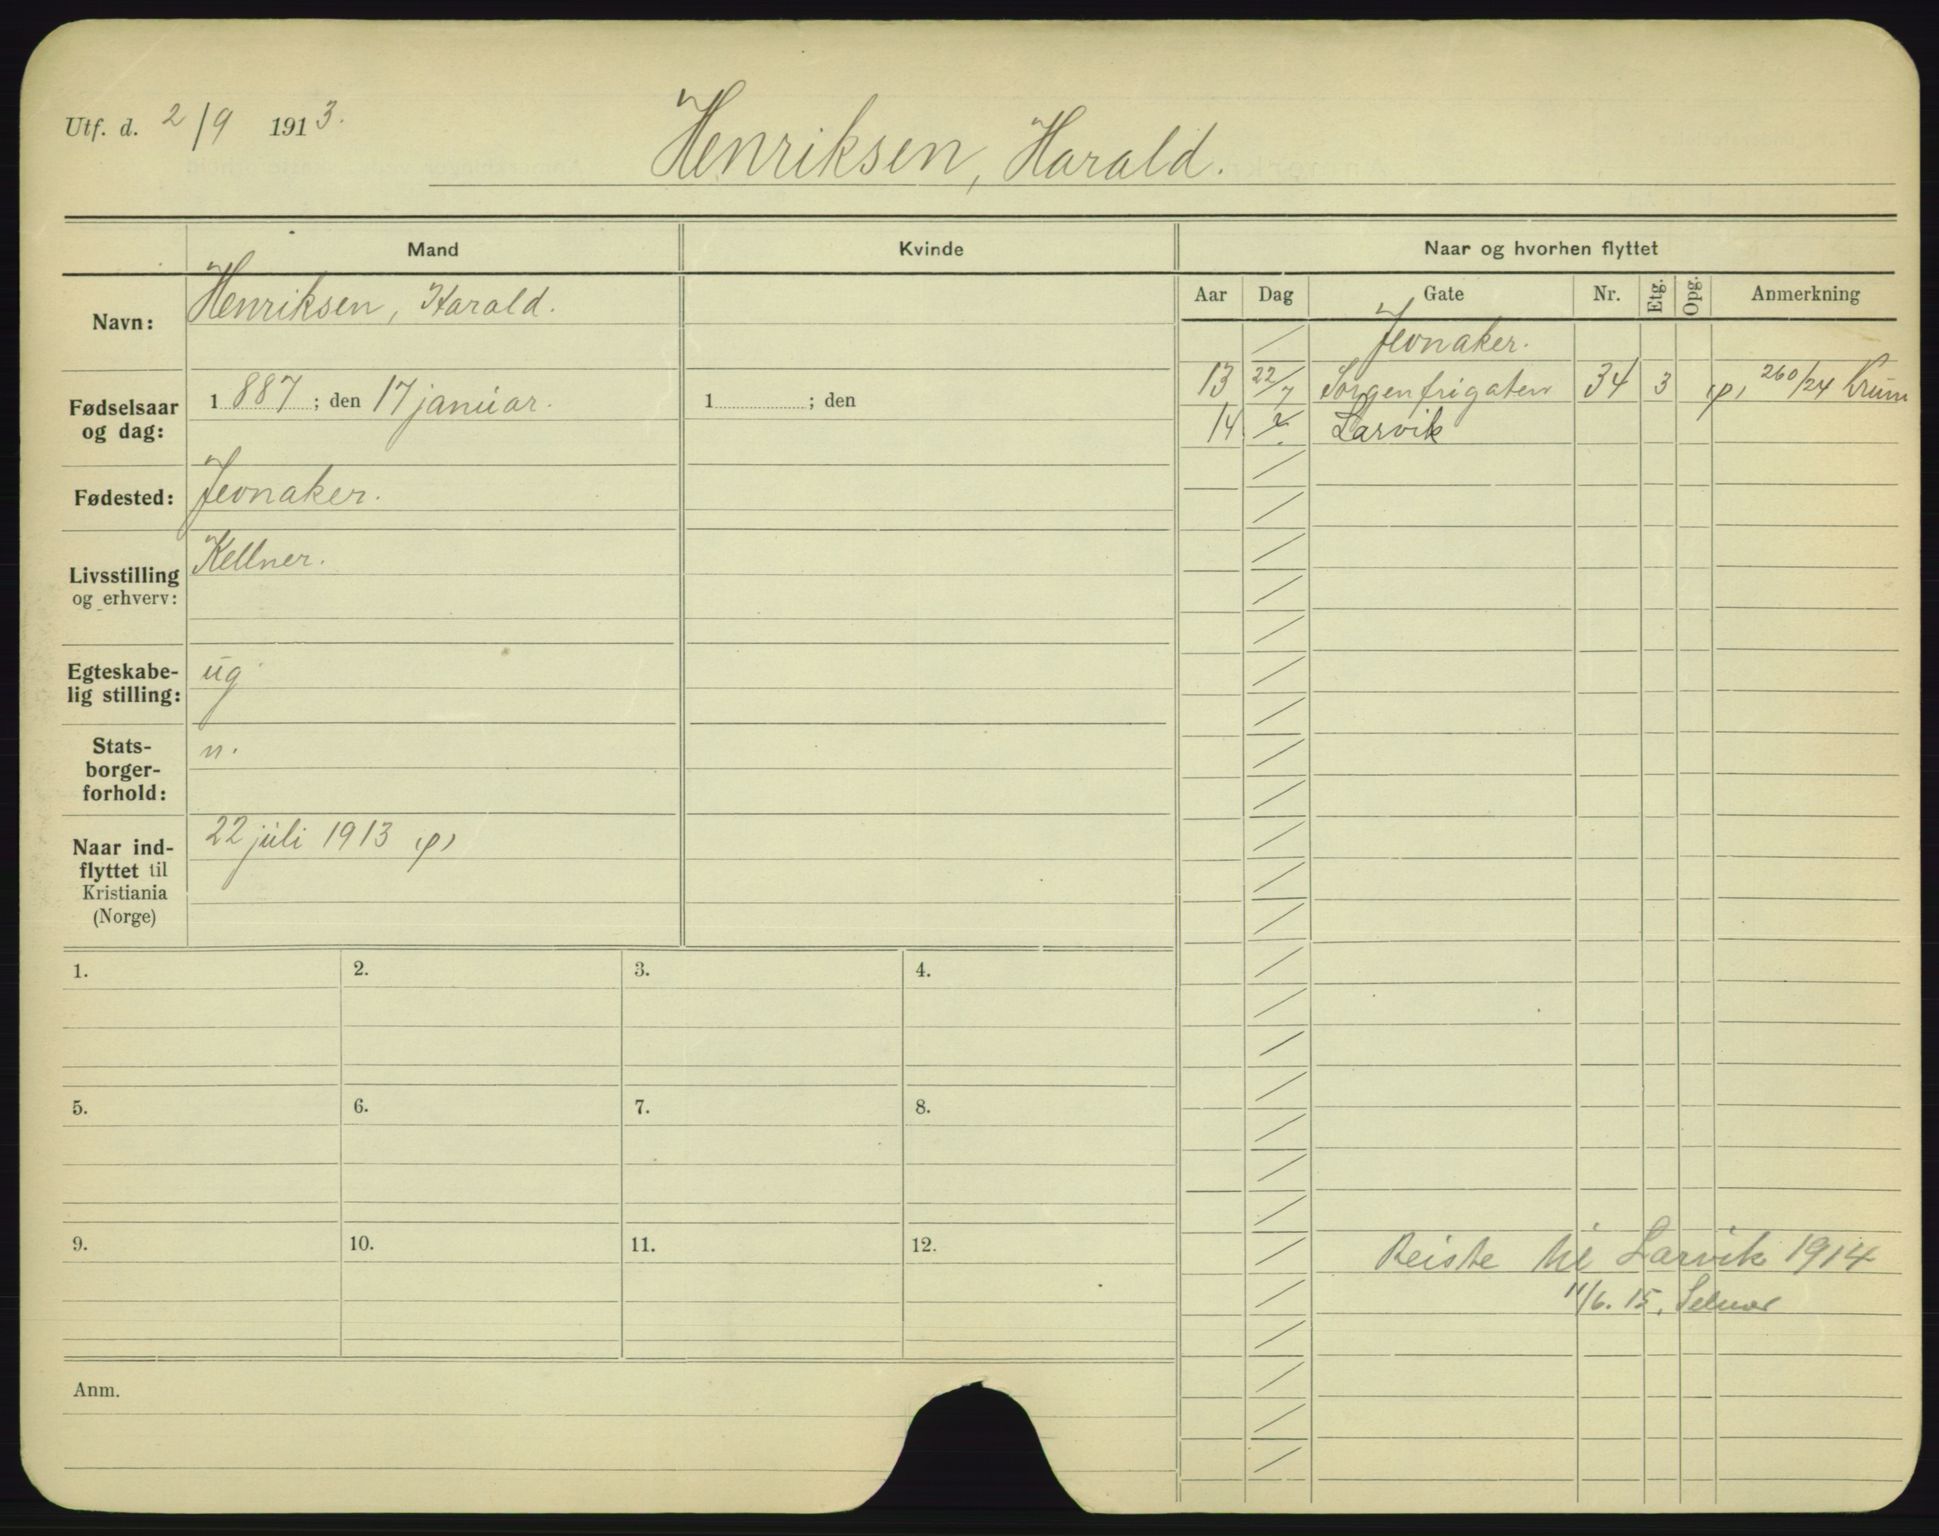 Utf. d. 2/9 1913.
Henriksen, Harald.
Mand
Kvinde
Naar og hvorhen flyttet
Aar Dag Gate Nr. Etg. Opg. Anmerkning
Navn: Henriksen, Harald.
Jevnaker.
13 22/7 Sorgenfrigaten 34 3 (p) 260/24
14 Larvik
Fødselsaar
og dag:
1 887; den 17 januar.
1 ; den
Fødested: Jevnaker.
Livsstilling
og erhverv:
Kellner.
Egteskabe-
lig stilling:
ug
Stats-
borger-
forhold:
n.
Naar ind-
flyttet til
Kristiania
(Norge)
22 juli 1913 (p)
1. 2. 3. 4.
5. 6. 7. 8.
9. 10. 11. 12.
Reiste til Larvik 1914
11/6. 15.
Anm.